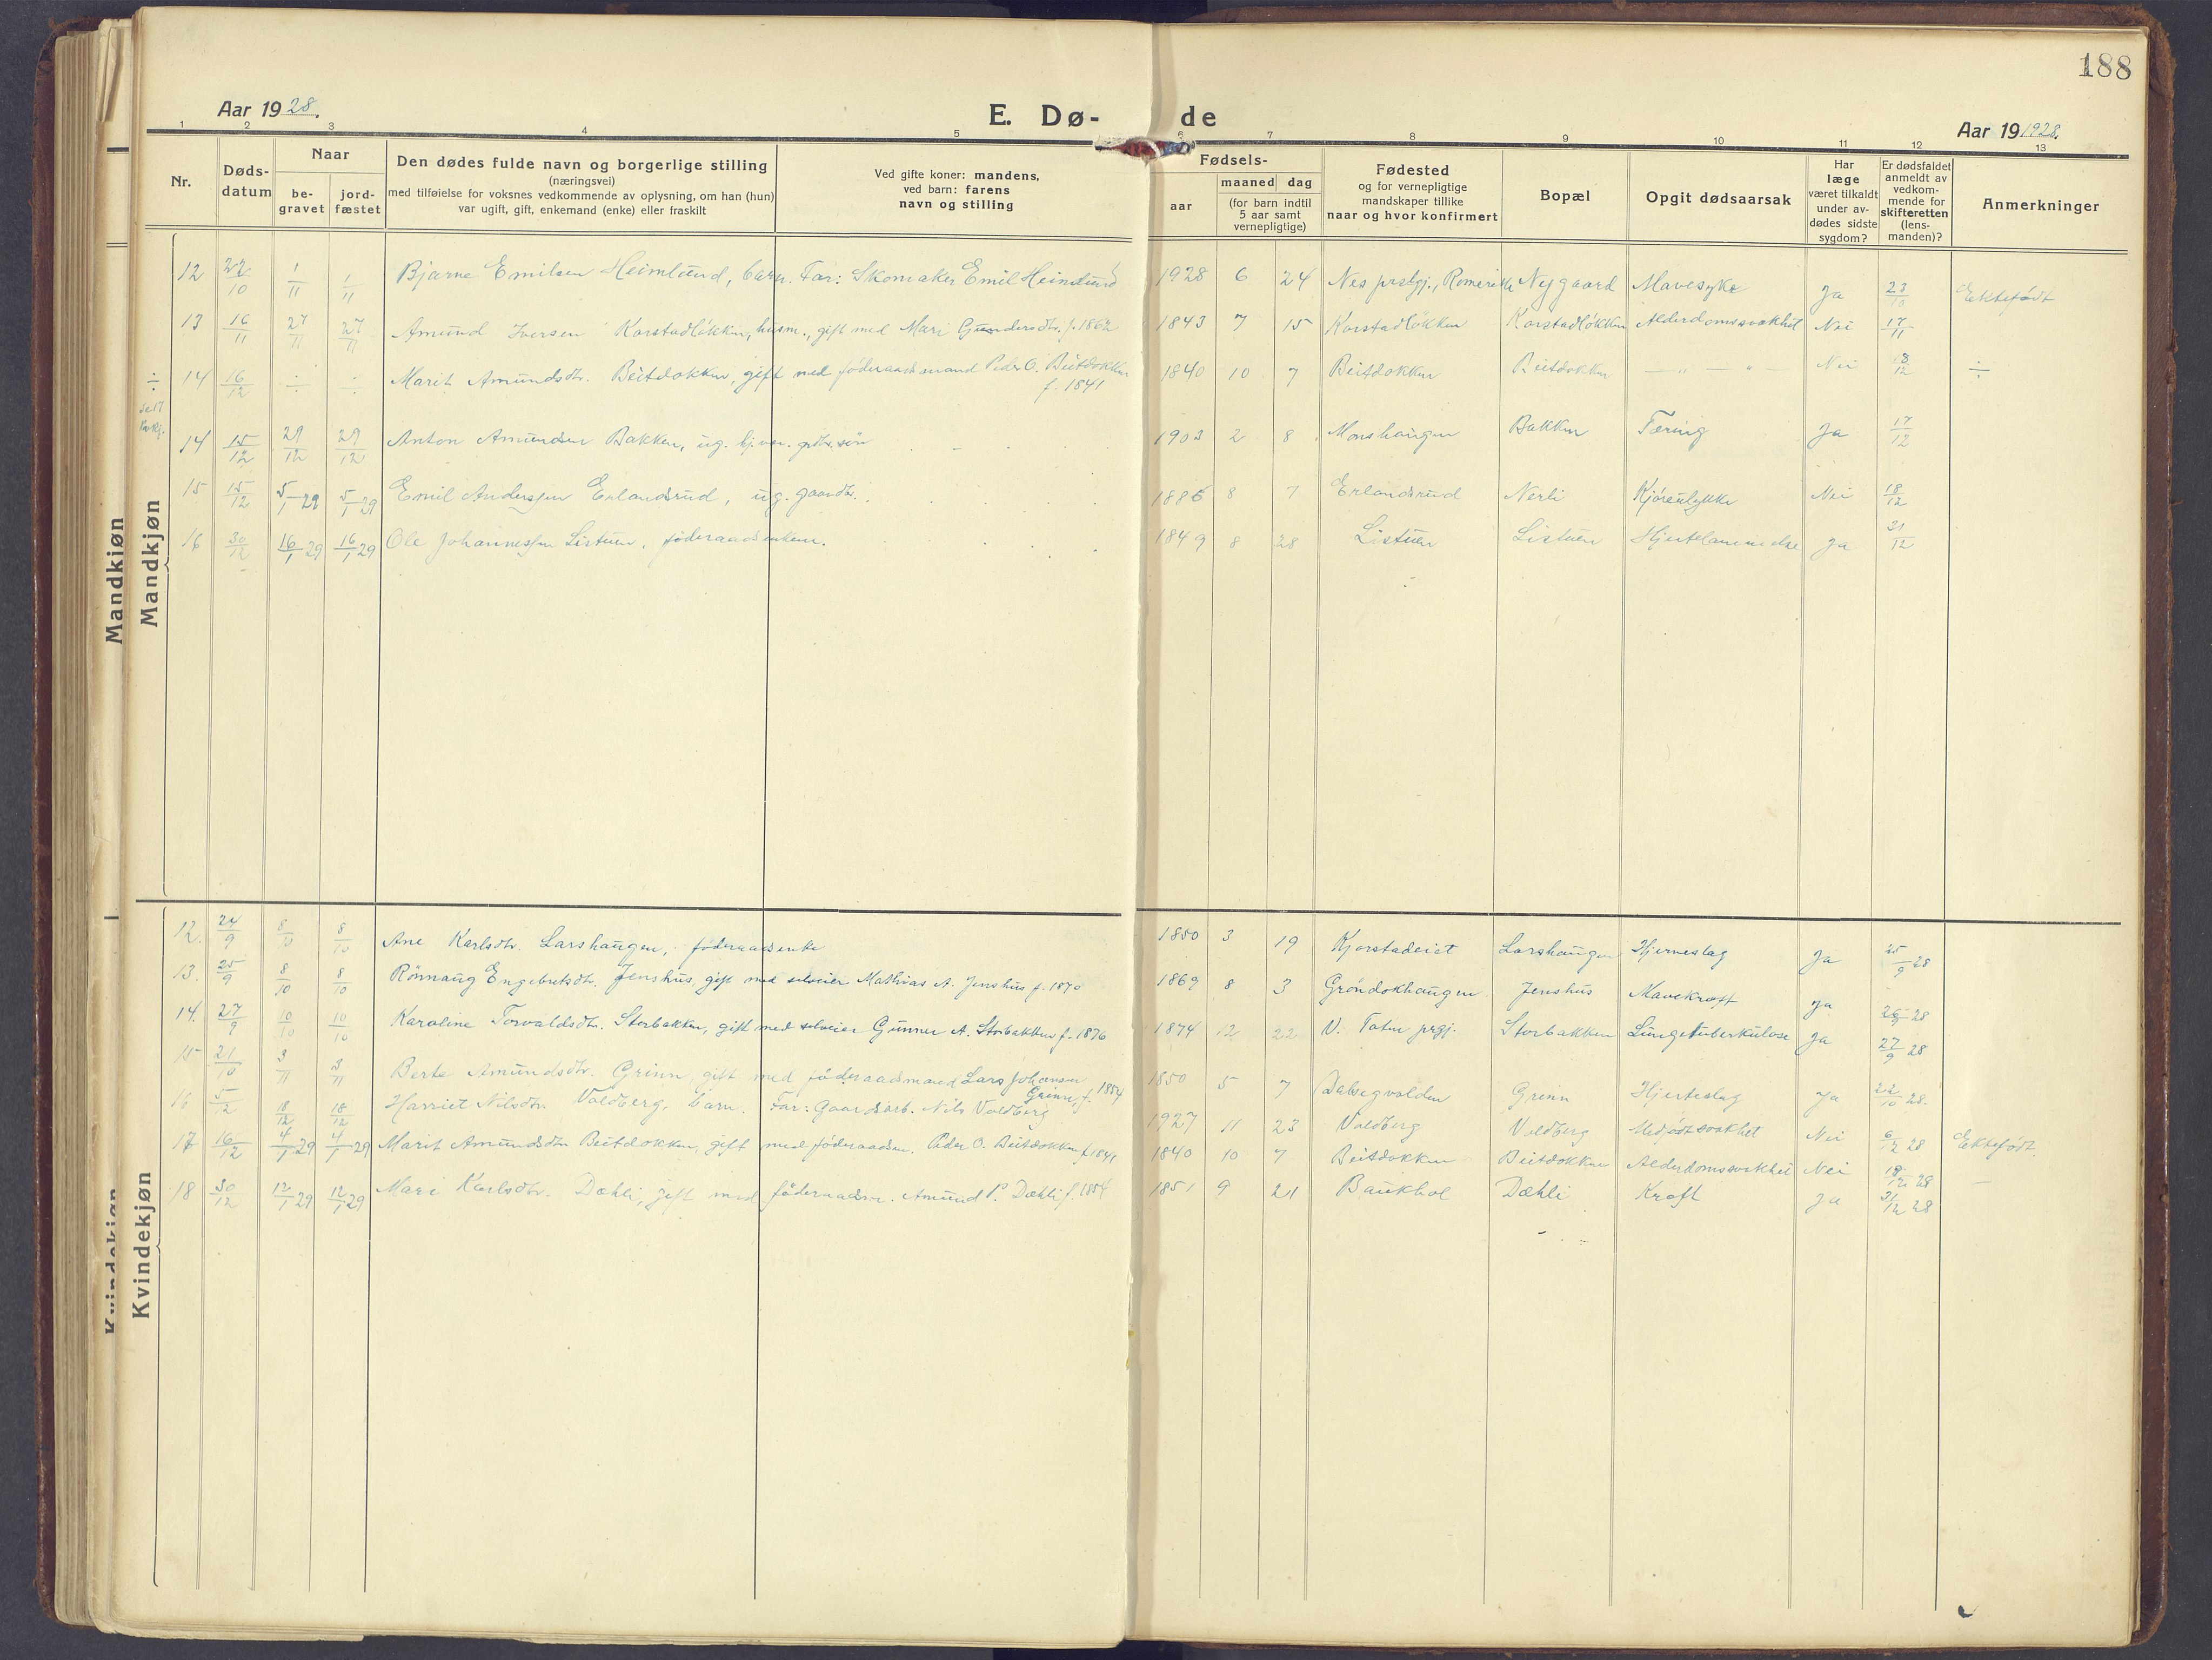 188
Aar 1928.
E. Dø-de
Aar 19 1928.
1 2 3 4 5 6 7 8 9 10 11 12 13
Nr.
Døds-datum
Naar
be-gravet
jord-fæstet
Den dødes fulde navn og borgerlige stilling
(næringsvei)
med tilføielse for voksnes vedkommende av oplysning, om han (hun)
var ugift, gift, enkemand (enke) eller fraskilt
Ved gifte koner: mandens,
ved barn: farens
navn og stilling
Fødsels-
aar
maaned dag
(for barn indtil
5 aar samt
vernepligtige)
Fødested
og for vernepligtige
mandskaper tillike
naar og hvor konfirmert
Bopæl
Opgit dødsaarsak
Har
læge
været tilkaldt
under av-
dødes sidste
sygdom?
Er dødsfaldet
anmeldt av
vedkom-
mende for
skifteretten
(lens-
manden)?
Anmerkninger
Mandkjøn
Mandkjøn
12 22/10 1/11 1/11 Bjarne Emilsen Heimlund, barn. Far: Skomaker Emil Heimlund 1928 6 24 Nes prstgj., Romerike Nygaard Mavesyke Ja 23/10 Ektefødt
13 16/11 27/11 27/11 Amund Iversen Korstadløkken, husm., gift med Mari Gundersdtr. f. 1862 1843 7 15 Korstadløkken Korstadløkken Alderdomssvakhet Nei 17/11
÷ 14 16/12 ÷ ÷ Marit Amundsdtr. Beitdokken, gift med føderaadsmand Peder O. Beitdokken f. 1841 1840 10 7 Beitdokken Beitdokken — " — " — Nei 18/12 ÷
Se 17 kvkj.
14 15/12 29/12 29/12 Anton Amundsen Bakken, ug. hj.vær. grdbr. søn 1903 2 8 Monshaugen Bakken Tæring Ja 17/12
15 15/12 5/1 29 5/1 29 Emil Anderssen Erlandsrud, ug. gaardbr. 1886 8 7 Erlandsrud Nerli Kjøreulykke Nei 18/12
16 30/12 16/1 29 16/1 29 Ole Johannessen Listuen, føderaadsenkem. 1849 8 28 Listuen Listuen Hjertelammelse Ja 31/12
Kvindekjøn
Kvindekjøn
12. 24/9 8/10 8/10 Ane Karlsdtr. Larshaugen, føderaadsenke 1850 3 19 Kjorstadeiet Larshaugen Hjerneslag Ja 25/9 28
13. 25/9 8/10 8/10 Rønnaug Engebretsdtr. Jenshus, gift med selveier Mathias A. Jenshus f. 1870 1869 8 3 Grøndokhaugen Jenshus Mavekræft Ja 26/9 28
14. 27/9 10/10 10/10 Karoline Torvaldsdtr. Storbakken, gift med selveier Gunner A. Storbakken f. 1876 1874 12 22 V. Toten prgj. Storbakken Lungetuberkulose Ja 27/9 28
15 21/10 3/11 3/11 Berte Amundsdtr. Grinn, gift med føderaadsmand Lars Johansen Grinn, f. 1854 1850 5 7 Dalsegvolden Grinn Hjerteslag Ja 22/10 28.
16 5/12 18/12 18/12 Harriet Nilsdtr. Voldberg, barn. Far: Gaardsarb. Nils Voldberg 1927 11 23 Voldberg Voldberg Medfødt svakhet Nei 6/12 28 Ektefødt.
17 16/12 4/1 29 4/1 29 Marit Amundsdtr. Beitdokken, gift med føderaadsm. Peder O. Beitdokken f. 1841 1840 10 7 Beitdokken Beitdokken Alderdomssvakhet Nei 18/12 28 —
18 30/12 12/1 29 12/1 29 Mari Karlsdtr. Dæhli, gift med føderaadsm. Amund P. Dæhli f. 1854 1851 9 21 Baukhol Dæhli Kræft Ja 31/12 28